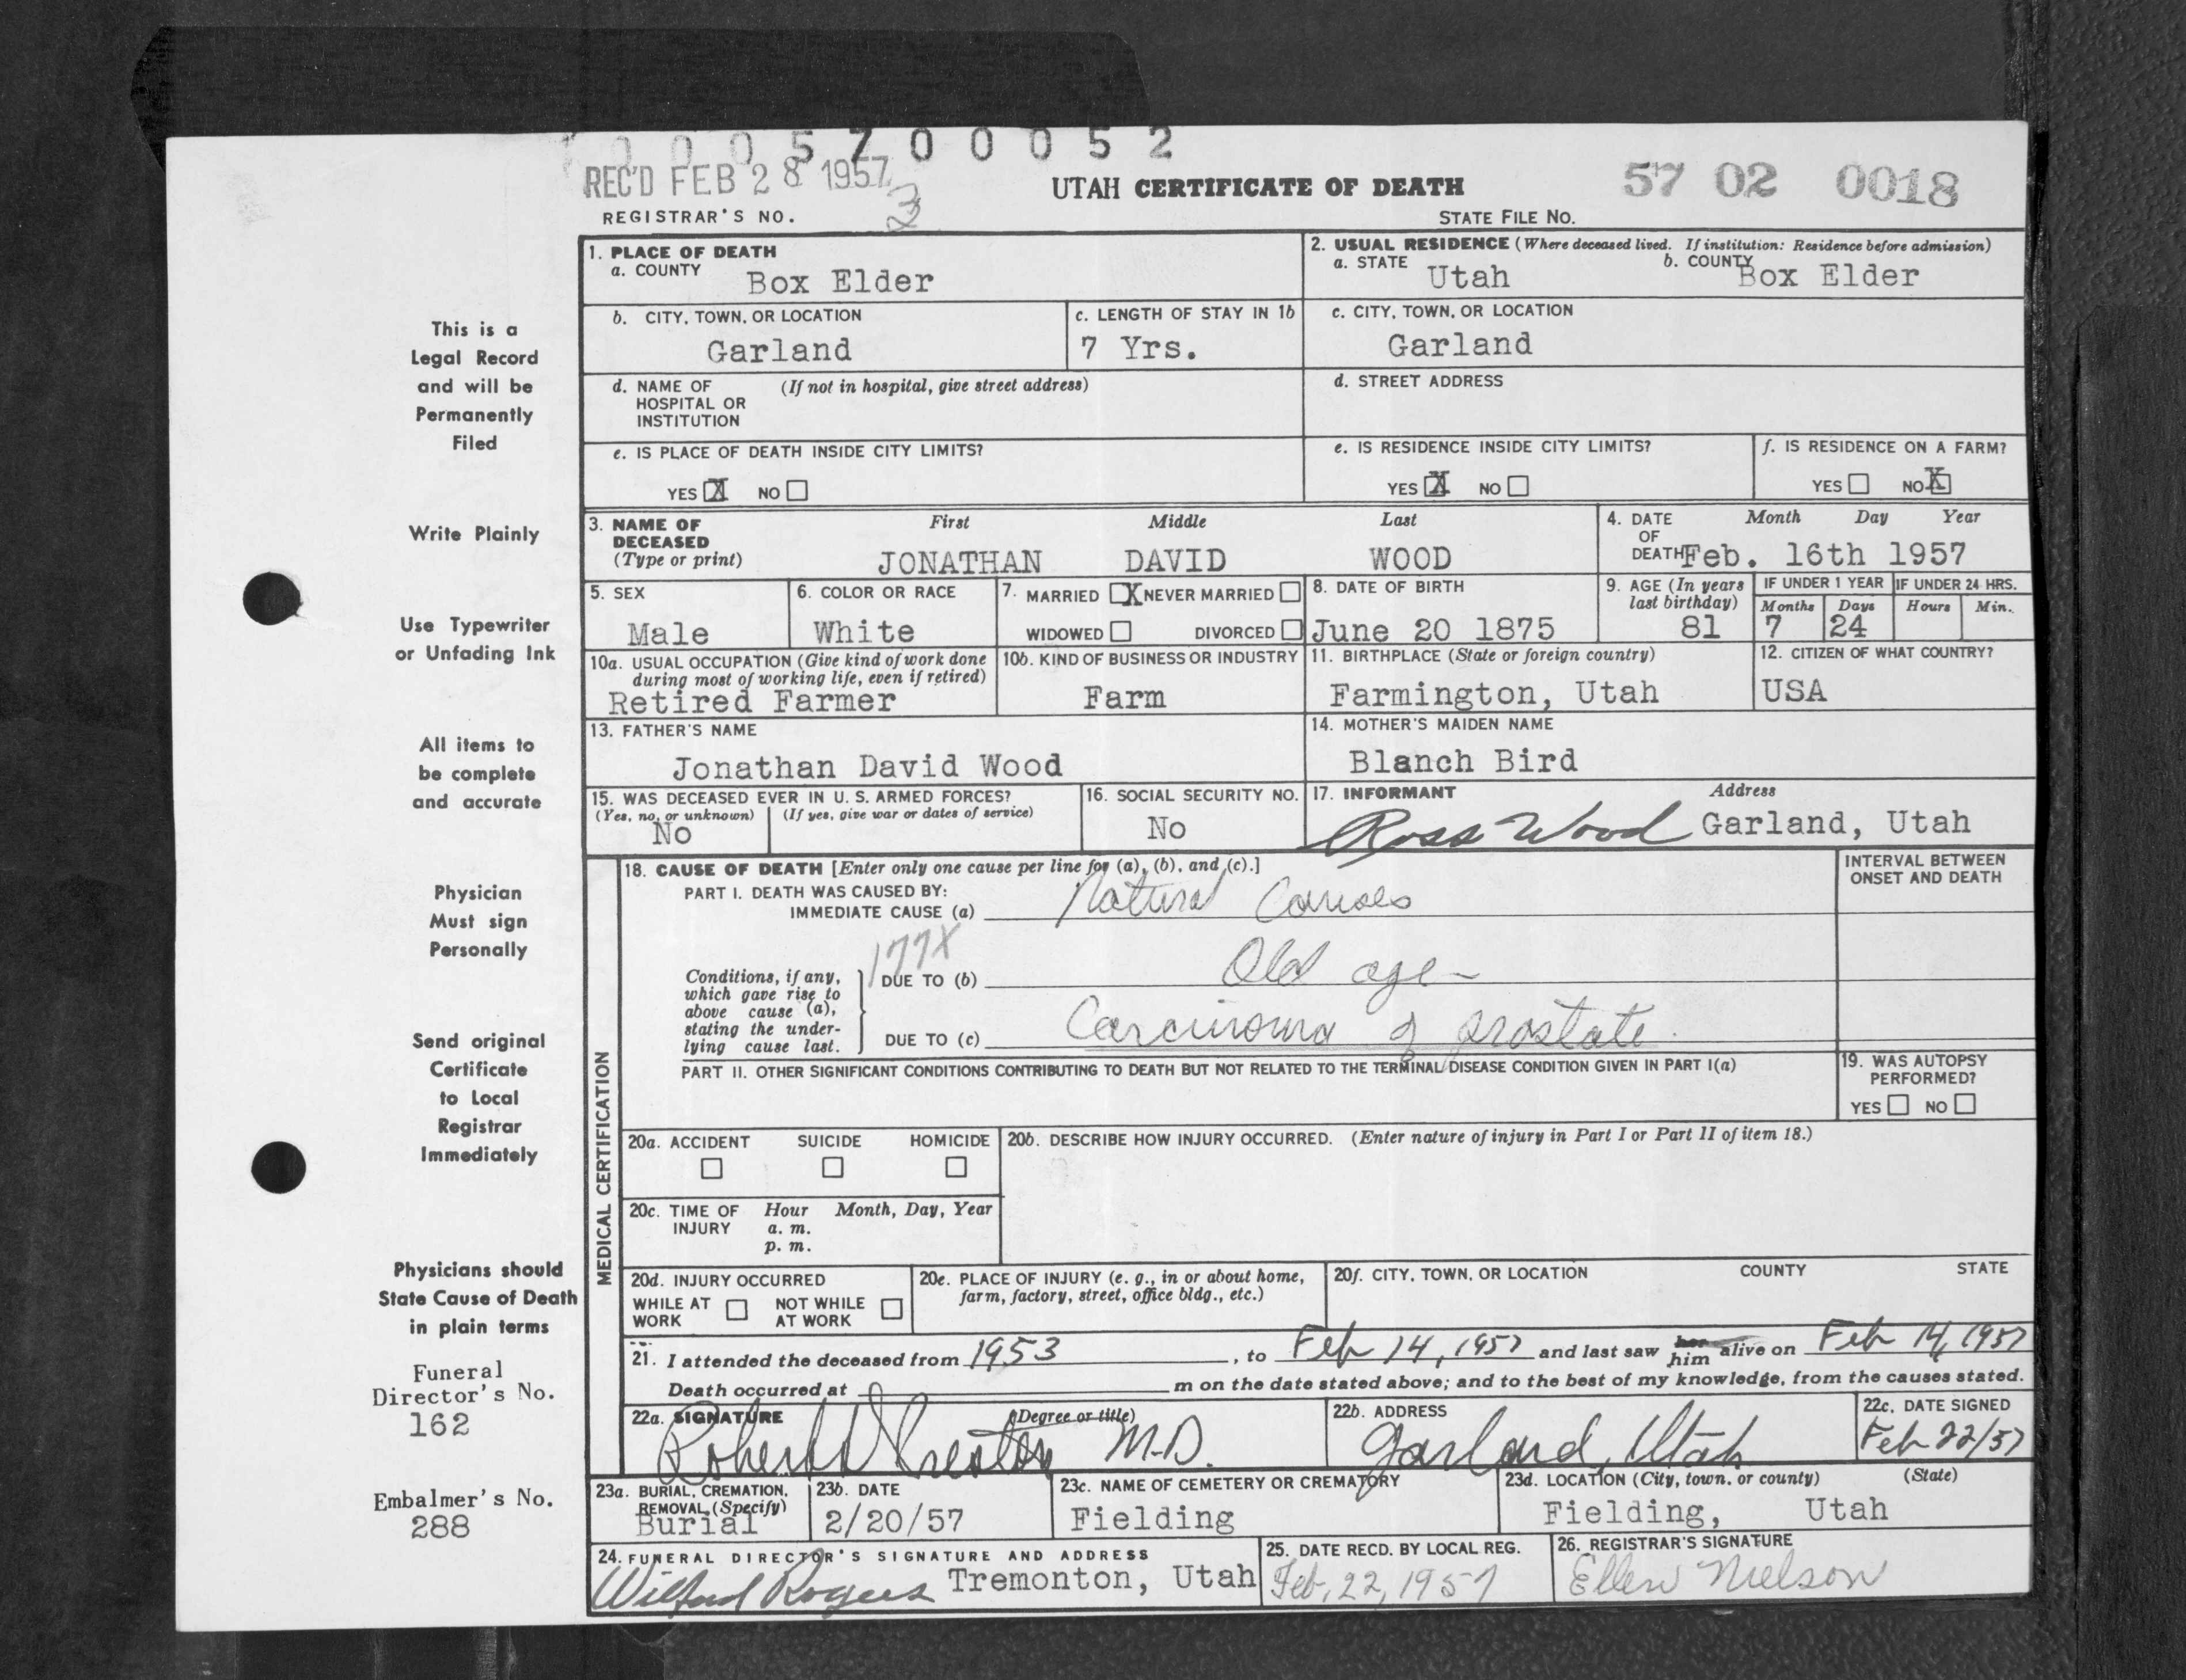 0005700052
REC'D FEB 28 1957
3
UTAH CERTIFICATE OF DEATH
57 02 0018
REGISTRAR'S NO.
STATE FILE NO.
1. PLACE OF DEATH
a. COUNTY Box Elder
2. USUAL RESIDENCE (Where deceased lived. If institution: Residence before admission)
a. STATE Utah b. COUNTY Box Elder
b. CITY, TOWN, OR LOCATION Garland
c. LENGTH OF STAY IN 1b 7 Yrs.
c. CITY, TOWN, OR LOCATION Garland
d. NAME OF HOSPITAL OR INSTITUTION (If not in hospital, give street address)
d. STREET ADDRESS
e. IS PLACE OF DEATH INSIDE CITY LIMITS?
YES X NO
e. IS RESIDENCE INSIDE CITY LIMITS?
YES X NO
f. IS RESIDENCE ON A FARM?
YES NO X
3. NAME OF DECEASED (Type or print)
First Middle Last
JONATHAN DAVID WOOD
4. DATE OF DEATH Month Day Year
Feb. 16th 1957
5. SEX
Male
6. COLOR OR RACE
White
7. MARRIED X NEVER MARRIED
WIDOWED DIVORCED
8. DATE OF BIRTH
June 20 1875
9. AGE (In years last birthday)
81
IF UNDER 1 YEAR IF UNDER 24 HRS.
Months Days Hours Min.
7 24
10a. USUAL OCCUPATION (Give kind of work done during most of working life, even if retired)
Retired Farmer
10b. KIND OF BUSINESS OR INDUSTRY
Farm
11. BIRTHPLACE (State or foreign country)
Farmington, Utah
12. CITIZEN OF WHAT COUNTRY?
USA
13. FATHER'S NAME
Jonathan David Wood
14. MOTHER'S MAIDEN NAME
Blanch Bird
15. WAS DECEASED EVER IN U. S. ARMED FORCES?
(Yes, no, or unknown) (If yes, give war or dates of service)
No
16. SOCIAL SECURITY NO.
No
17. INFORMANT Address
Ross Wood Garland, Utah
MEDICAL CERTIFICATION
18. CAUSE OF DEATH [Enter only one cause per line for (a), (b), and (c).]
PART I. DEATH WAS CAUSED BY:
IMMEDIATE CAUSE (a) Natural Causes
INTERVAL BETWEEN ONSET AND DEATH
177X
Conditions, if any, which gave rise to above cause (a), stating the underlying cause last.
DUE TO (b) Old age-
DUE TO (c) Carcinoma of prostate.
PART II. OTHER SIGNIFICANT CONDITIONS CONTRIBUTING TO DEATH BUT NOT RELATED TO THE TERMINAL DISEASE CONDITION GIVEN IN PART I(a)
19. WAS AUTOPSY PERFORMED?
YES NO
20a. ACCIDENT SUICIDE HOMICIDE
20b. DESCRIBE HOW INJURY OCCURRED. (Enter nature of injury in Part I or Part II of item 18.)
20c. TIME OF INJURY Hour Month, Day, Year
a. m.
p. m.
20d. INJURY OCCURRED
WHILE AT WORK NOT WHILE AT WORK
20e. PLACE OF INJURY (e. g., in or about home, farm, factory, street, office bldg., etc.)
20f. CITY, TOWN, OR LOCATION COUNTY STATE
21. I attended the deceased from 1953, to Feb 14, 1957 and last saw her him alive on Feb 14, 1957
Death occurred at m on the date stated above; and to the best of my knowledge, from the causes stated.
22a. SIGNATURE (Degree or title)
Robert M.D.
22b. ADDRESS
Garland, Utah
22c. DATE SIGNED
Feb 22/57
23a. BURIAL, CREMATION, REMOVAL (Specify)
Burial
23b. DATE
2/20/57
23c. NAME OF CEMETERY OR CREMATORY
Fielding
23d. LOCATION (City, town, or county) (State)
Fielding, Utah
24. FUNERAL DIRECTOR'S SIGNATURE AND ADDRESS
Wilford Rogers Tremonton, Utah
25. DATE RECD. BY LOCAL REG.
Feb, 22, 1957
26. REGISTRAR'S SIGNATURE
Ellen Nielson
This is a
Legal Record
and will be
Permanently
Filed
Write Plainly
Use Typewriter
or Unfading Ink
All items to
be complete
and accurate
Physician
Must sign
Personally
Send original
Certificate
to Local
Registrar
Immediately
Physicians should
State Cause of Death
in plain terms
Funeral
Director's No.
162
Embalmer's No.
288